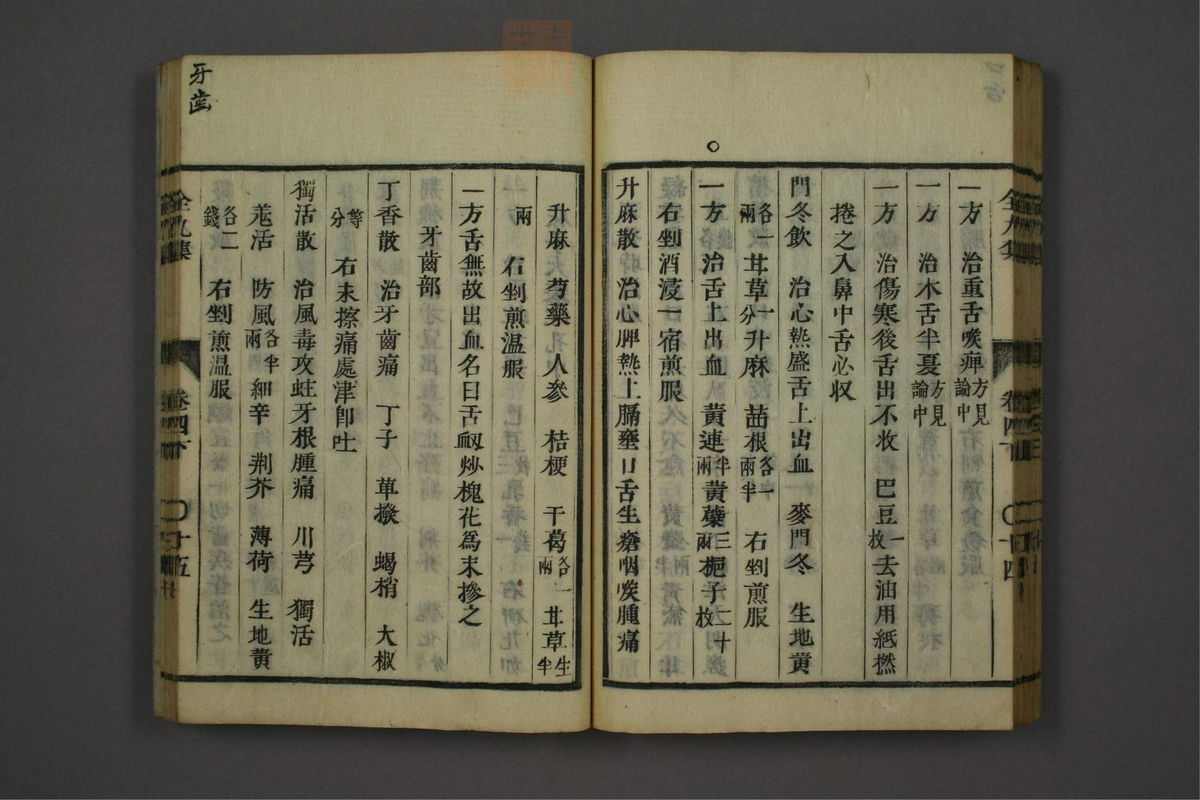 一方 治重舌喉痺方見論中
一方 治木舌半夏方見論中
一方 治傷寒後舌出不收 巴豆一枚去油用紙撚
捲之入鼻中舌必収
門冬飲 治心熱盛舌上出血 麥門冬 生地黄
各一兩 甘草一分 升麻 苗根各一兩半 右剉煎服
一方 治舌上出血 黄連半兩 黄蘗三兩 梔子二十枚
右剉酒浸一宿煎服
升麻散 治心脾熱上膈壅口舌生瘡咽喉腫痛
升麻 芍藥 人参 桔梗 干葛各一兩 甘草生半
兩 右剉煎温服
一方舌無故出血名曰舌衂炒槐花為末摻之
牙齒部
丁香散 治牙齒痛 丁子 蓽撥 蝎梢 大椒
等分 右末擦痛處津卽吐
獨活散 治風毒攻蛀牙根腫痛 川芎 獨活
羗活 防風各半兩 細辛 荆芥 薄荷 生地黄
各二錢 右剉煎温服
牙歯
全九集
卷四下
十五
全九集
卷四下
十四